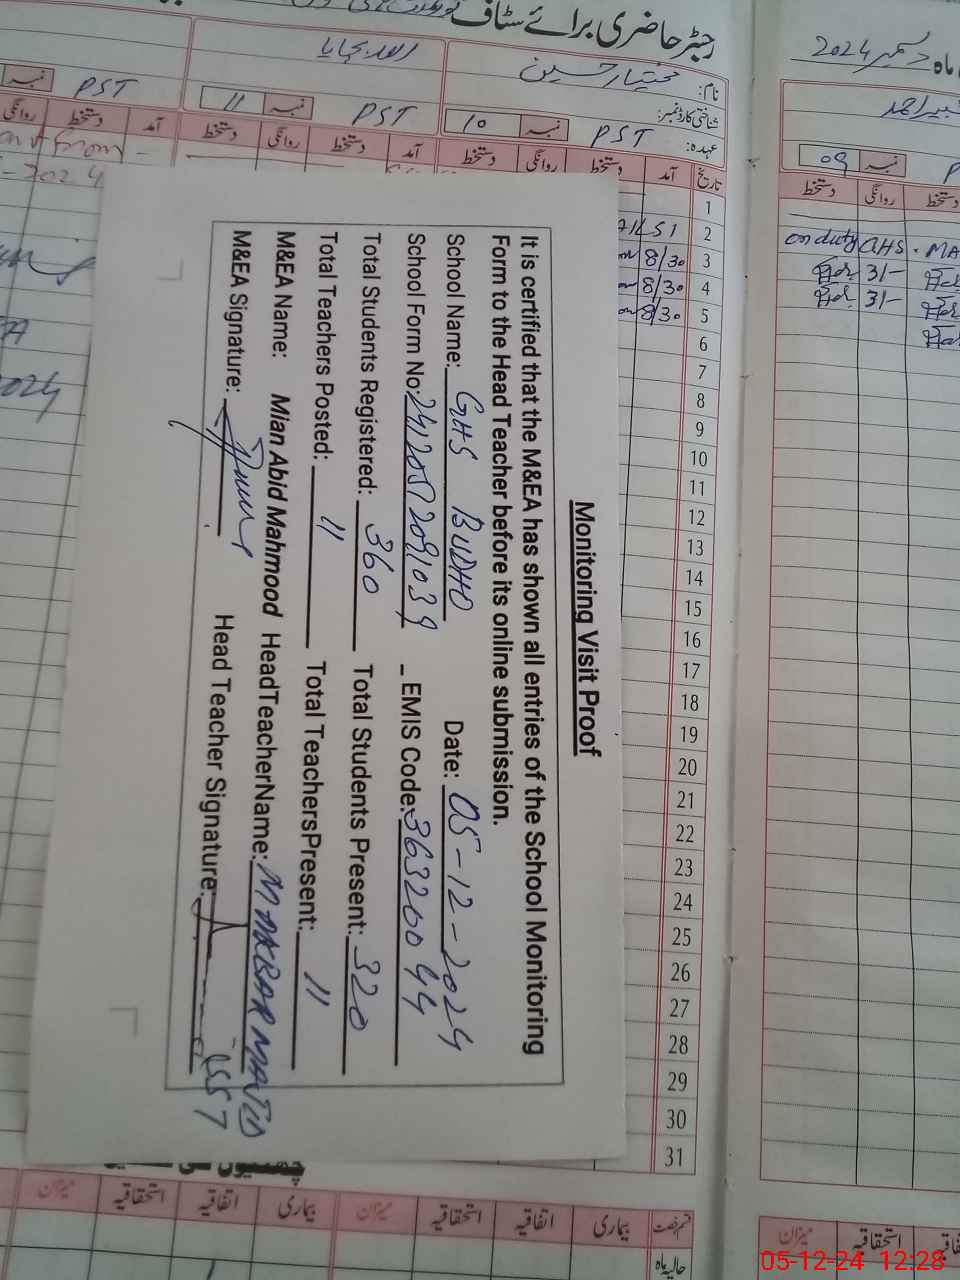 رجسٹر حاضری برائے سٹاف
ماہ دسمبر 2024
نام: مختیار حسین
شناختی کارڈ نمبر:
عہدہ: PST نمبر 10
PST نمبر 11
PST نمبر
نمبر 09
تاریخ آمد دستخط روانگی دستخط
آمد دستخط روانگی دستخط
آمد دستخط روانگی
دستخط روانگی دستخط
1
2
3 8/30
4 8/30
5 8/30
6
7
8
9
10
11
12
13
14
15
16
17
18
19
20
21
22
23
24
25
26
27
28
29
30
31
on duty GHS
3/-
3/-
Monitoring Visit Proof
It is certified that the M&EA has shown all entries of the School Monitoring
Form to the Head Teacher before its online submission.
School Name: GHS BUDHO Date: 05-12-2024
School Form No: 2412052091039 EMIS Code: 36320044
Total Students Registered: 360 Total Students Present: 320
Total Teachers Posted: 11 Total TeachersPresent: 11
M&EA Name: Mian Abid Mahmood HeadTeacherName: M AKBAR MAJID
M&EA Signature: Head Teacher Signature:
قسم رخصت بیماری اتفاقیہ استحقاقیہ میزان بیماری اتفاقیہ استحقاقیہ میزان
حالیہ ماہ
استحقاقیہ میزان
05-12-24 12:28